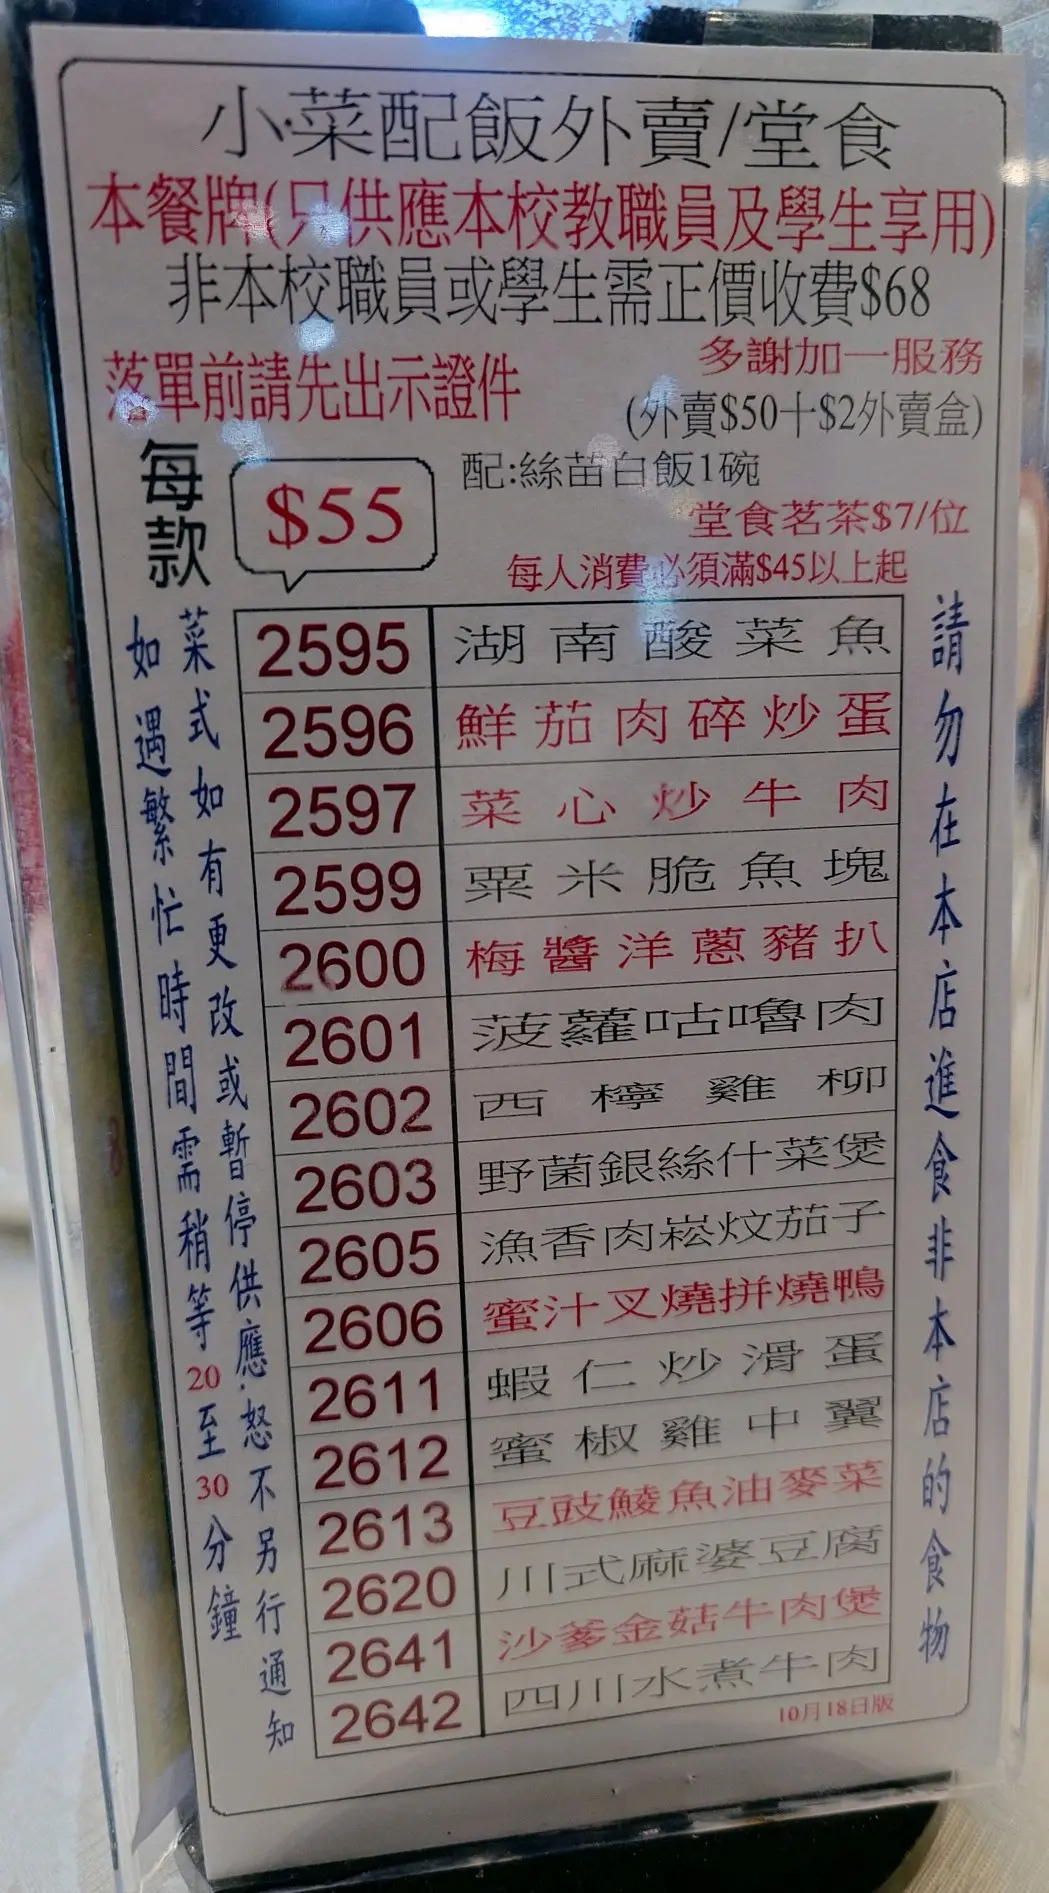 小菜配飯外賣/堂食
本餐牌(只供應本校教職員及學生享用)
非本校職員或學生需正價收費$68
落單前請先出示證件
多謝加一服務
(外賣$50十$2外賣盒)
每款
$55
配:絲苗白飯1碗
堂食茗茶$7/位
每人消費必須滿$45以上起
2595 湖南酸菜魚
2596 鮮茄肉碎炒蛋
2597 菜心炒牛肉
2599 粟米脆魚塊
2600 梅醬洋蔥豬扒
2601 菠蘿咕嚕肉
2602 西檸雞柳
2603 野菌銀絲什菜煲
2605 漁香肉崧炆茄子
2606 蜜汁叉燒拼燒鴨
2611 蝦仁炒滑蛋
2612 蜜椒雞中翼
2613 豆豉鯪魚油麥菜
2620 川式麻婆豆腐
2641 沙爹金菇牛肉煲
2642 四川水煮牛肉
10月18日版
請勿在本店進食非本店的食物
菜式如有更改或暫停供應.怒不另行通知
如遇繁忙時間需稍等20至30分鐘